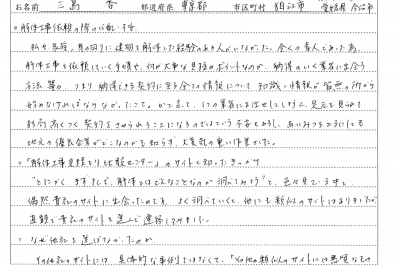 お名前 三島 香 都道府県 東京都 市区町村 狛江市 愛媛県 今治市
○解体工事依頼の際の心配・不安
私や各務、身の回りに建物を解体した経験のある人がいなかった。全くの素人であった為、
解体工事を依頼していく手順や、何が大事な見極めポイントなのか、納得のいく業者に出会う
方法等々、つまり納得できる契約に至る全ての情報について知識・情報が皆無の所から
始めなければならなかったこと。かと言って、1つの業者にお任せにしてしまうと、足元を見られて
結局高くつく契約をさせられることになるのではという不安もあるし、あいみつをとるにしても
地元の優良企業がどこなのかも知らず、大変気の重い作業でした。
○「解体工事見積もり比較センター」のサイトを知ったきっかけ
"とにかく、まずネットで、解体とはどんなことなのか調べてみよう"と、色々見ている中で
偶然貴社のサイトに出会ったのです。よく調べていくと、他にも類似のサイトはありましたが
直観で貴社のサイトを選んで連絡してみました。
○なぜ他社を選ばなかったのか
その他社のサイトには、具体的な事例などはなくて、「その他の類似のサイトには悪質なもの